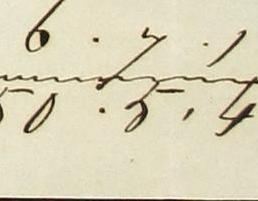 6 . 7 . 1
50 . 5 , 4